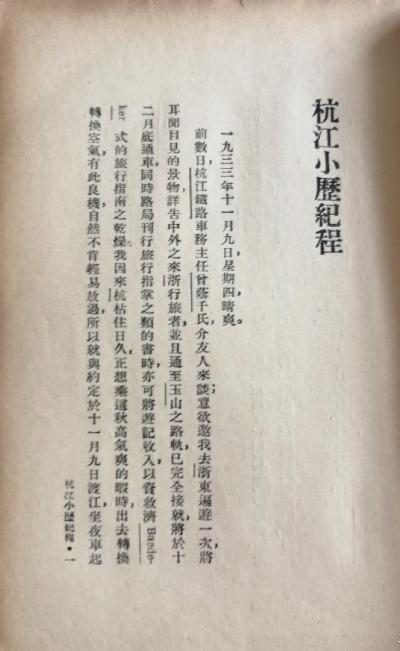 杭江小歷紀程
一九三三年十一月九日，星期四，晴爽。
前數日，杭江鐵路車務主任曾蔭千氏，介友人來談；意欲邀我去浙東遍遊一次，將
耳聞目見的景物，詳告中外之來浙行旅者，並且通至玉山之路軌，已完全接就，將於十
二月底通車，同時路局刊行旅行指掌之類的書時，亦可將遊記收入，以資救濟 Baede-
ker 式的旅行指南之乾燥。我因來杭枯住日久，正想乘這秋高氣爽的暇時，出去轉換
轉換空氣，有此良機，自然不肯輕易放過，所以就與約定於十一月九日渡江，坐夜車起
杭江小歷紀程·一